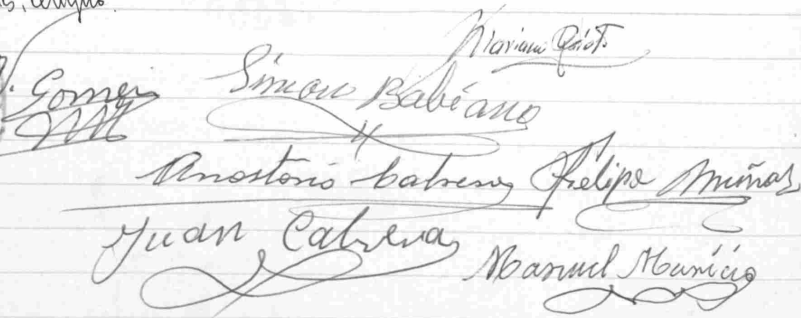 Mariano
Gomez Simon Babiano
Anastasio Cabrera Felipe Muñoz
Juan Cabrera
Manuel Mauricio